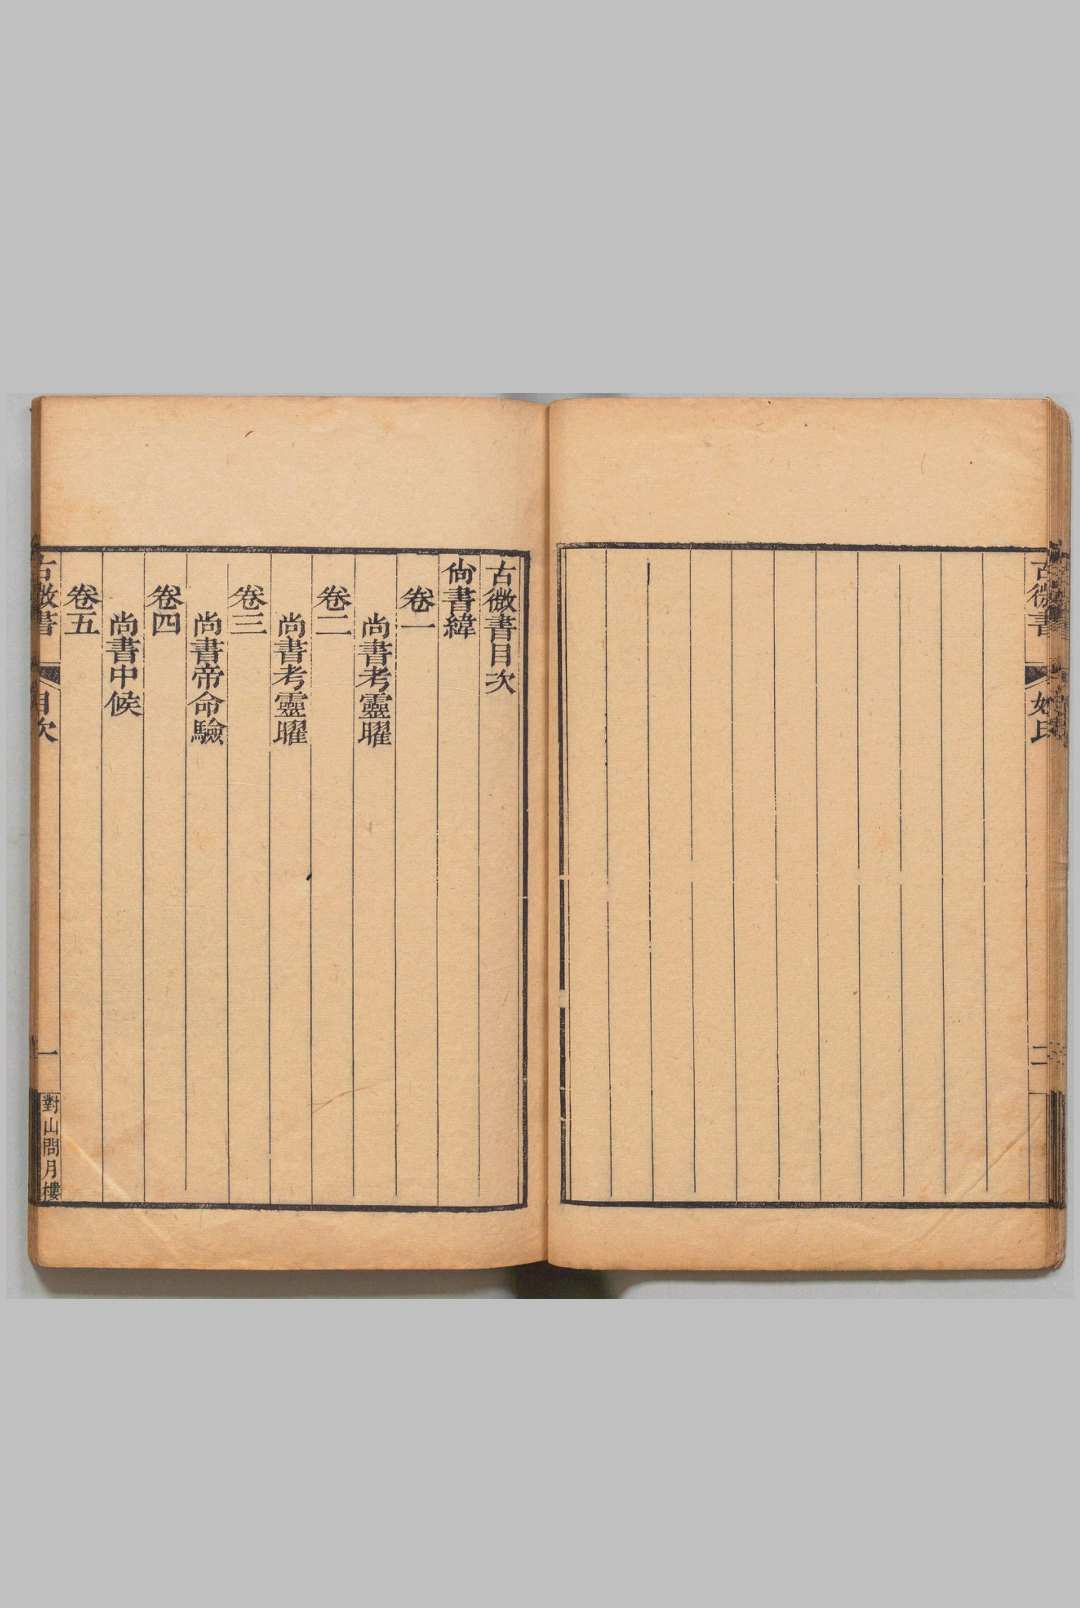 古微書
姓氏
二
古微書目次
尙書緯
卷一
尚書考靈曜
卷二
尚書考靈曜
卷三
尚書帝命驗
卷四
尚書中候
卷五
古微書
目次
一
對山問月樓